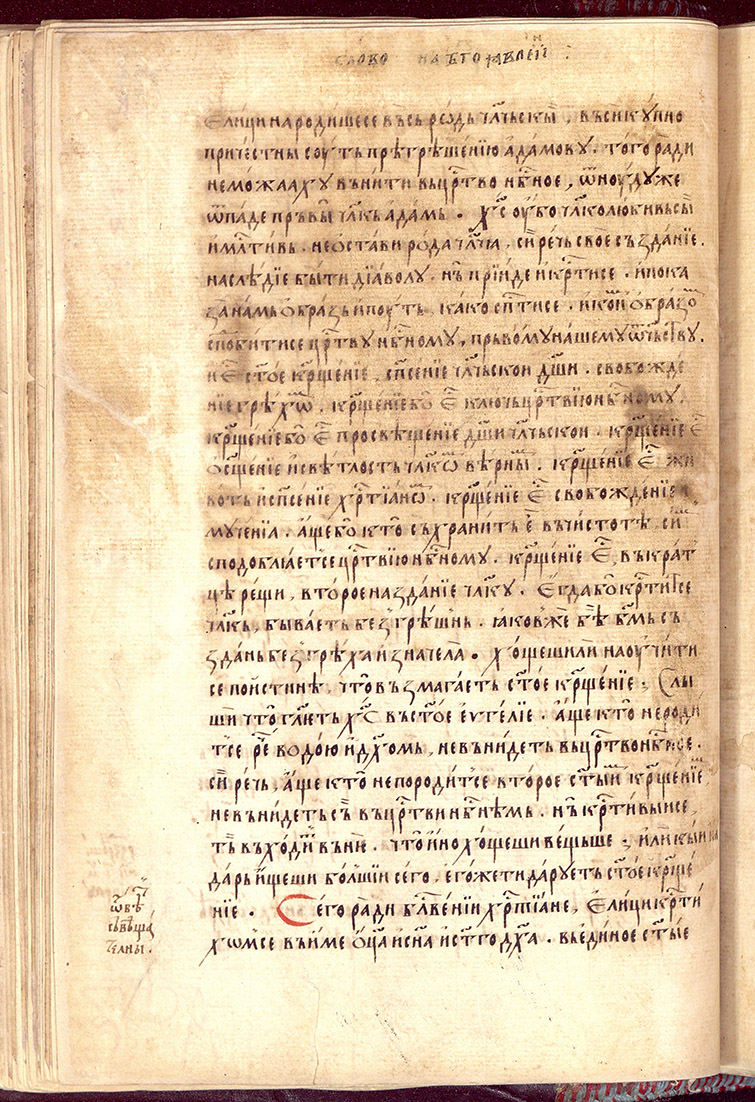 слово на бг҃оꙗвлені́е
Е҆ли́ци народи́шесе въ въсь рѡ́дь чл҃чьскы́и, въсикꙋ́пно
причестны соуть прѣгрѣше́нїю а҆да́мовꙋ. того̀ ра́ди
не мо́жаахꙋ вънити въ цр҃тво нб҃ное, ѿноу́дꙋже
ѿпаде пръвы́и чл҃кь а҆да́мь. хс҃ оу҆бо чл҃колюби́вь сы́
и҆ мл҃тивь. не ѡ҆ста́ви ро́да чл҃ча, си́рѣчь свое създа́нїе.
наслѣ́дїе бы́ти дїа́волꙋ. нъ̀ прїи́де и҆ кр҃тисе. и҆ пока
за намь ѡ҆́бразь и҆ поуть, ка́ко сп҃тисе. и҆ кои́м ѡ҆́бразом
спо́битисе цр҃твꙋ нб҃номꙋ, пръвомꙋ нашемꙋ ѿч҃ьствꙋ.
и҆ є҆с҃ ст҃о́е кр҃ще́нїе, сп҃се́нїе чл҃чьскои дш҃и. свобожде
нїе грѣхѡ́м. кр҃ще́нїе бо є҆с҃ ключь цр҃твїю нб҃номꙋ.
кр҃ще́нїе бо є҆с҃ просвѣще́нїе дш҃и чл҃чьскои. кр҃ще́нїе є҆с҃
ѡ҆сщ҃е́нїе и҆ свѣ́тлость чл҃кѡм вѣ́рным. кр҃ще́нїе є҆с҃ жи
вотъ и҆ сп҃се́нїе хр҃тїа́нѡм. кр҃ще́нїе є҆с҃ свобожде́нїе
мꙋче́нїа. а҆́ще бо кто̀ съхрани́ть є҆ въ чи́стотѣ. сїи
сподоблꙗ́етсе цр҃твїю нб҃номꙋ. кр҃ще́нїе є҆с҃, въ крат
цѣ рещи, второе наꙁда́нїе чл҃кꙋ. Е҆гда́ бо кр҃титсе
чл҃кь, быва́еть беꙁгрѣ́шнь. ꙗ҆́коже бѣ̀ бг҃омь съ
ꙁда́нь беꙁгрѣ́ха иꙁнача́ла. хо́щеши ли наоучи́ти
се пои́стинѣ, что̀ въꙁмага́еть ст҃о́е кр҃ще́нїе; Слы
ши что̀ гл҃еть хс҃ въ ст҃о́е еѵⷢ҇е́лїе. а҆́ще кто̀ не роди
тсе рече водо́ю и҆ дх҃омь, не въни́деть въ цр҃тво нб҃ное.
си́рѣчь, а҆́ще кто̀ не породи́тсе второе ст҃ы́м кр҃ще́нїем
не въни́деть съ̀ въ цр҃тви нб҃нѣмь. нъ̀ кр҃ти́выисе,
тъ̀ въхо́дить въ нїе. что̀ и҆но хо́щеши ве́щьше; и҆ли̑ кыи
да́рь и҆́щеши бо́лшїи сего̀, е҆го́же ти да́рꙋеть ст҃о́е кр҃ще́
нїе. Сего̀ ра́ди бл҃ве́нїи хр҃тїа́не, Е҆ли́ци кр҃ти
хѡмсе въ и҆́ме ѡ҆ц҃а и҆ сн҃а и҆ ст҃го дх҃а. въ е҆ди́ное ст҃ы́е